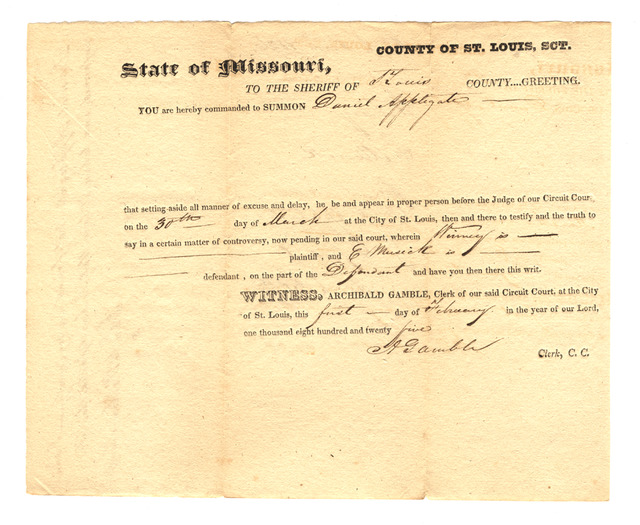 COUNTY OF ST. LOUIS, SCT.
State of Missouri,
TO THE SHERIFF OF St Louis COUNTY....GREETING.
YOU are hereby commanded to SUMMON Daniel Applegate —
that setting-aside all manner of excuse and delay, he be and appear in proper person before the Judge of our Circuit Court,
on the 30th day of March at the City of St. Louis, then and there to testify and the truth to
say in a certain matter of controversy, now pending in our said court, wherein Winney is —
— plaintiff, and E Musick is —
defendant, on the part of the Defendant and have you then there this writ.
WITNESS, ARCHIBALD GAMBLE, Clerk of our said Circuit Court, at the City
of St. Louis, this first — day of February in the year of our Lord,
one thousand eight hundred and twenty five
A Gamble Clerk, C. C.